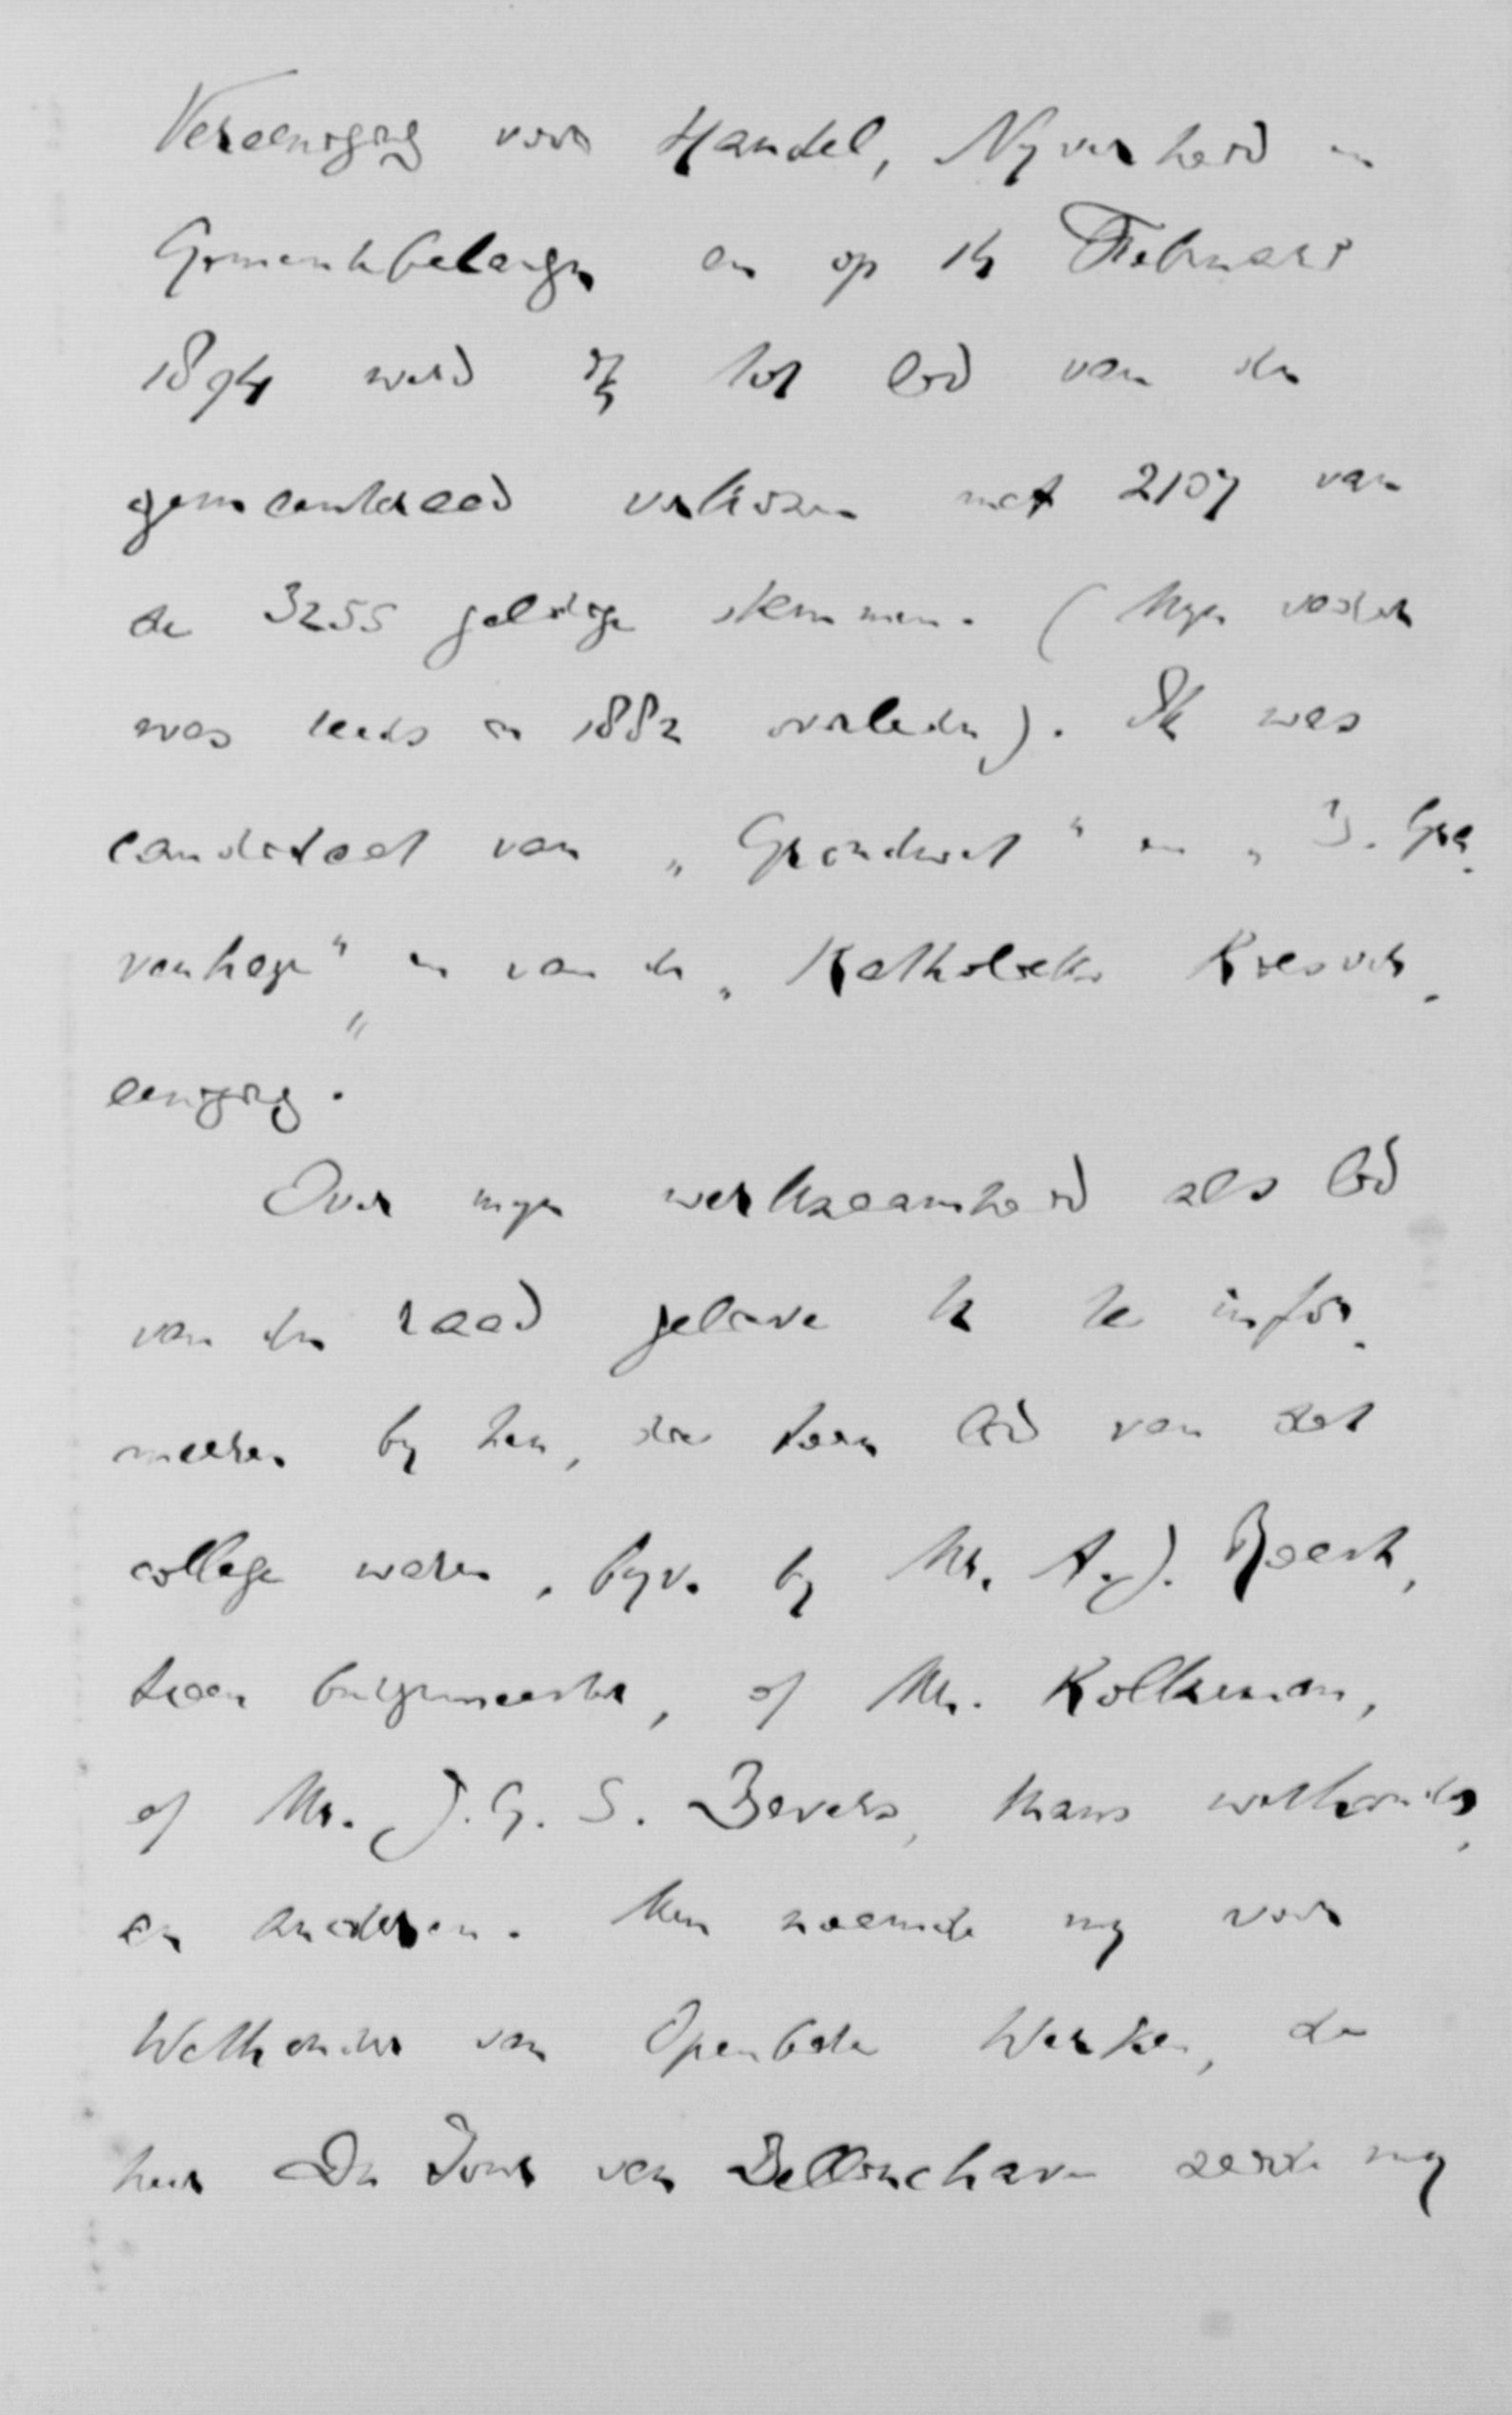 Vereeniging voor Handel, Nyverheid en
Gemeentebelangen en op 14 Februari
1894 werd ik tot lid van den
gemeenteraad verkozen met 2107 van
de 3255 geldige stemmen. (Myn vader
was reeds in 1882 overleden). Ik was
candidaat van „Grondwet" en „'s Gra-
venhage" en van de „Katholieke Kiesver-
eeniging."
Over myn werkzaamheid als lid
van den raad gelieve U te infor-
meeren by hen, die toen lid van dat
college waren, byv. by Mr. A. J. Roest,
toen burgemeester, of Mr. Kolkman,
of Mr. J. G. S. Bevers, thans wethouder,
en anderen. Men noemde my voor
Wethouder van Openbare Werken, de
heer Du Tour van Bellinchave zeide my